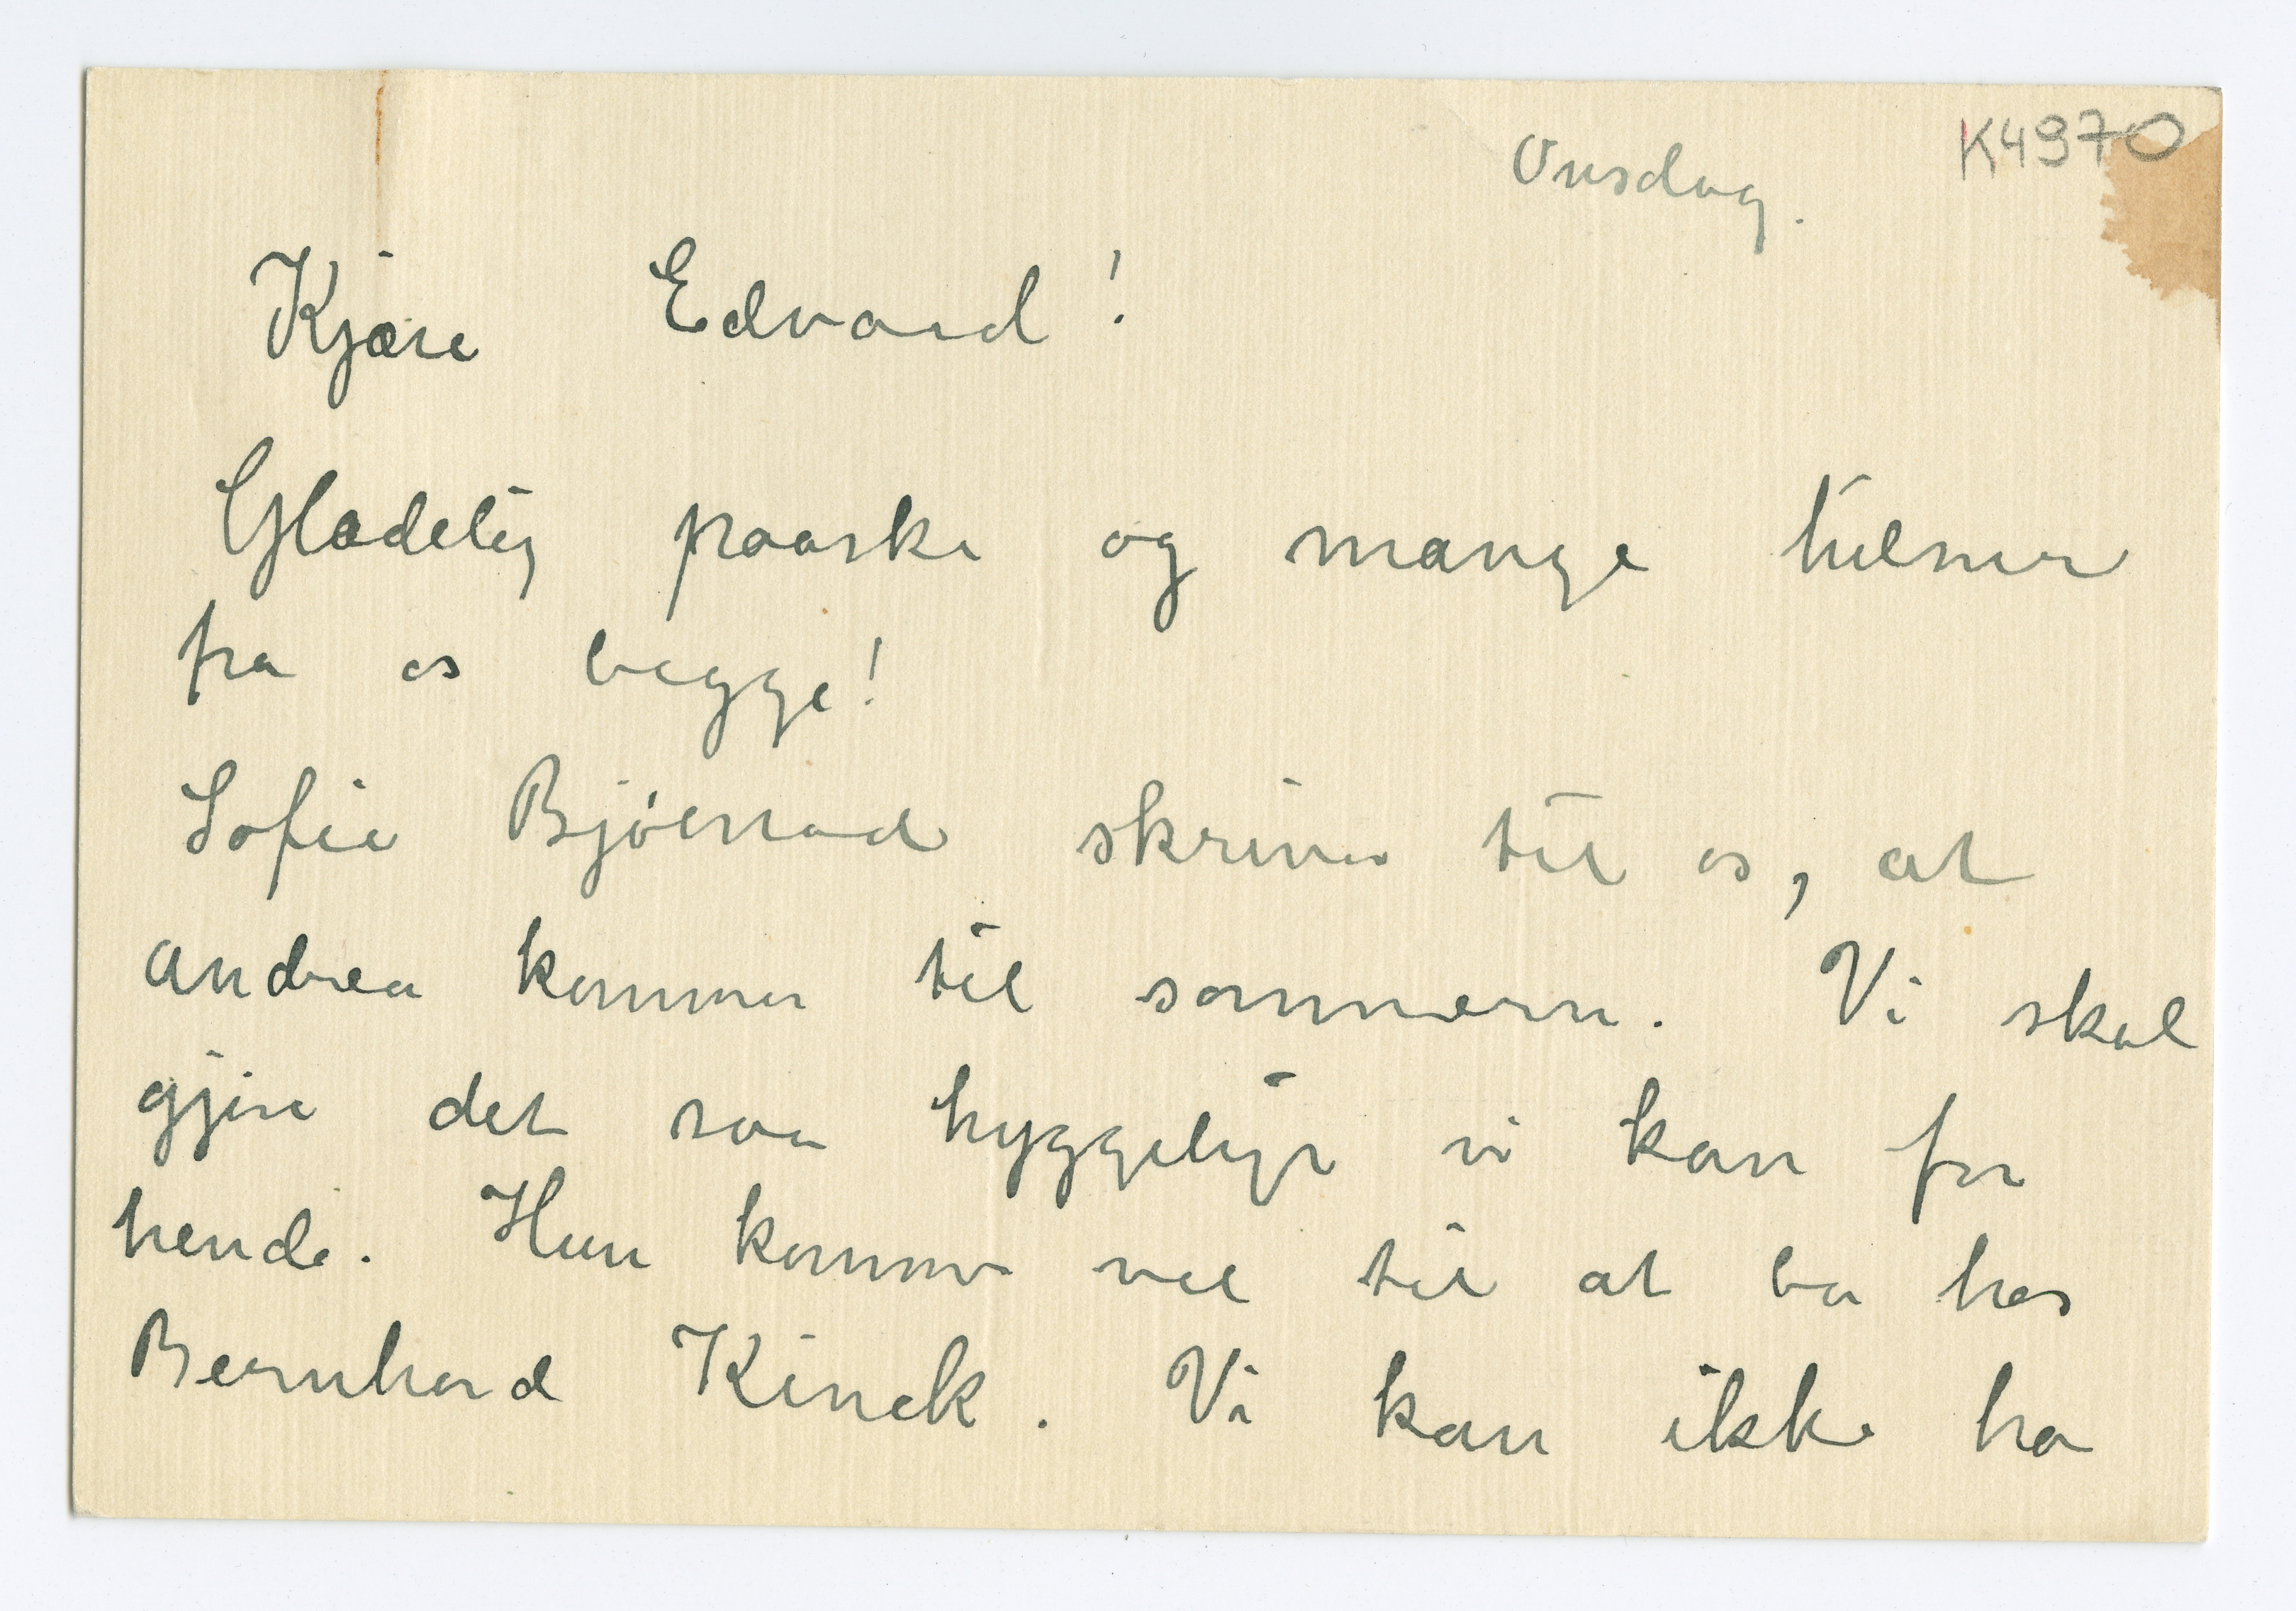 K4970
Onsdag.
Kjære Edvard!
Glædelig paaske og mange hilsner
fra os begge!
Sofie Bjölstad skriver til os, at
Andrea kommer til sommern. Vi skal
gjøre det saa hyggeligt vi kan for
hende. Hun kommer vel til at bo hos
Bernhard Kinck. Vi kan ikke ha